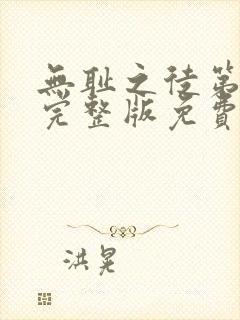 無耻之徒第
完整版免費
洪晃